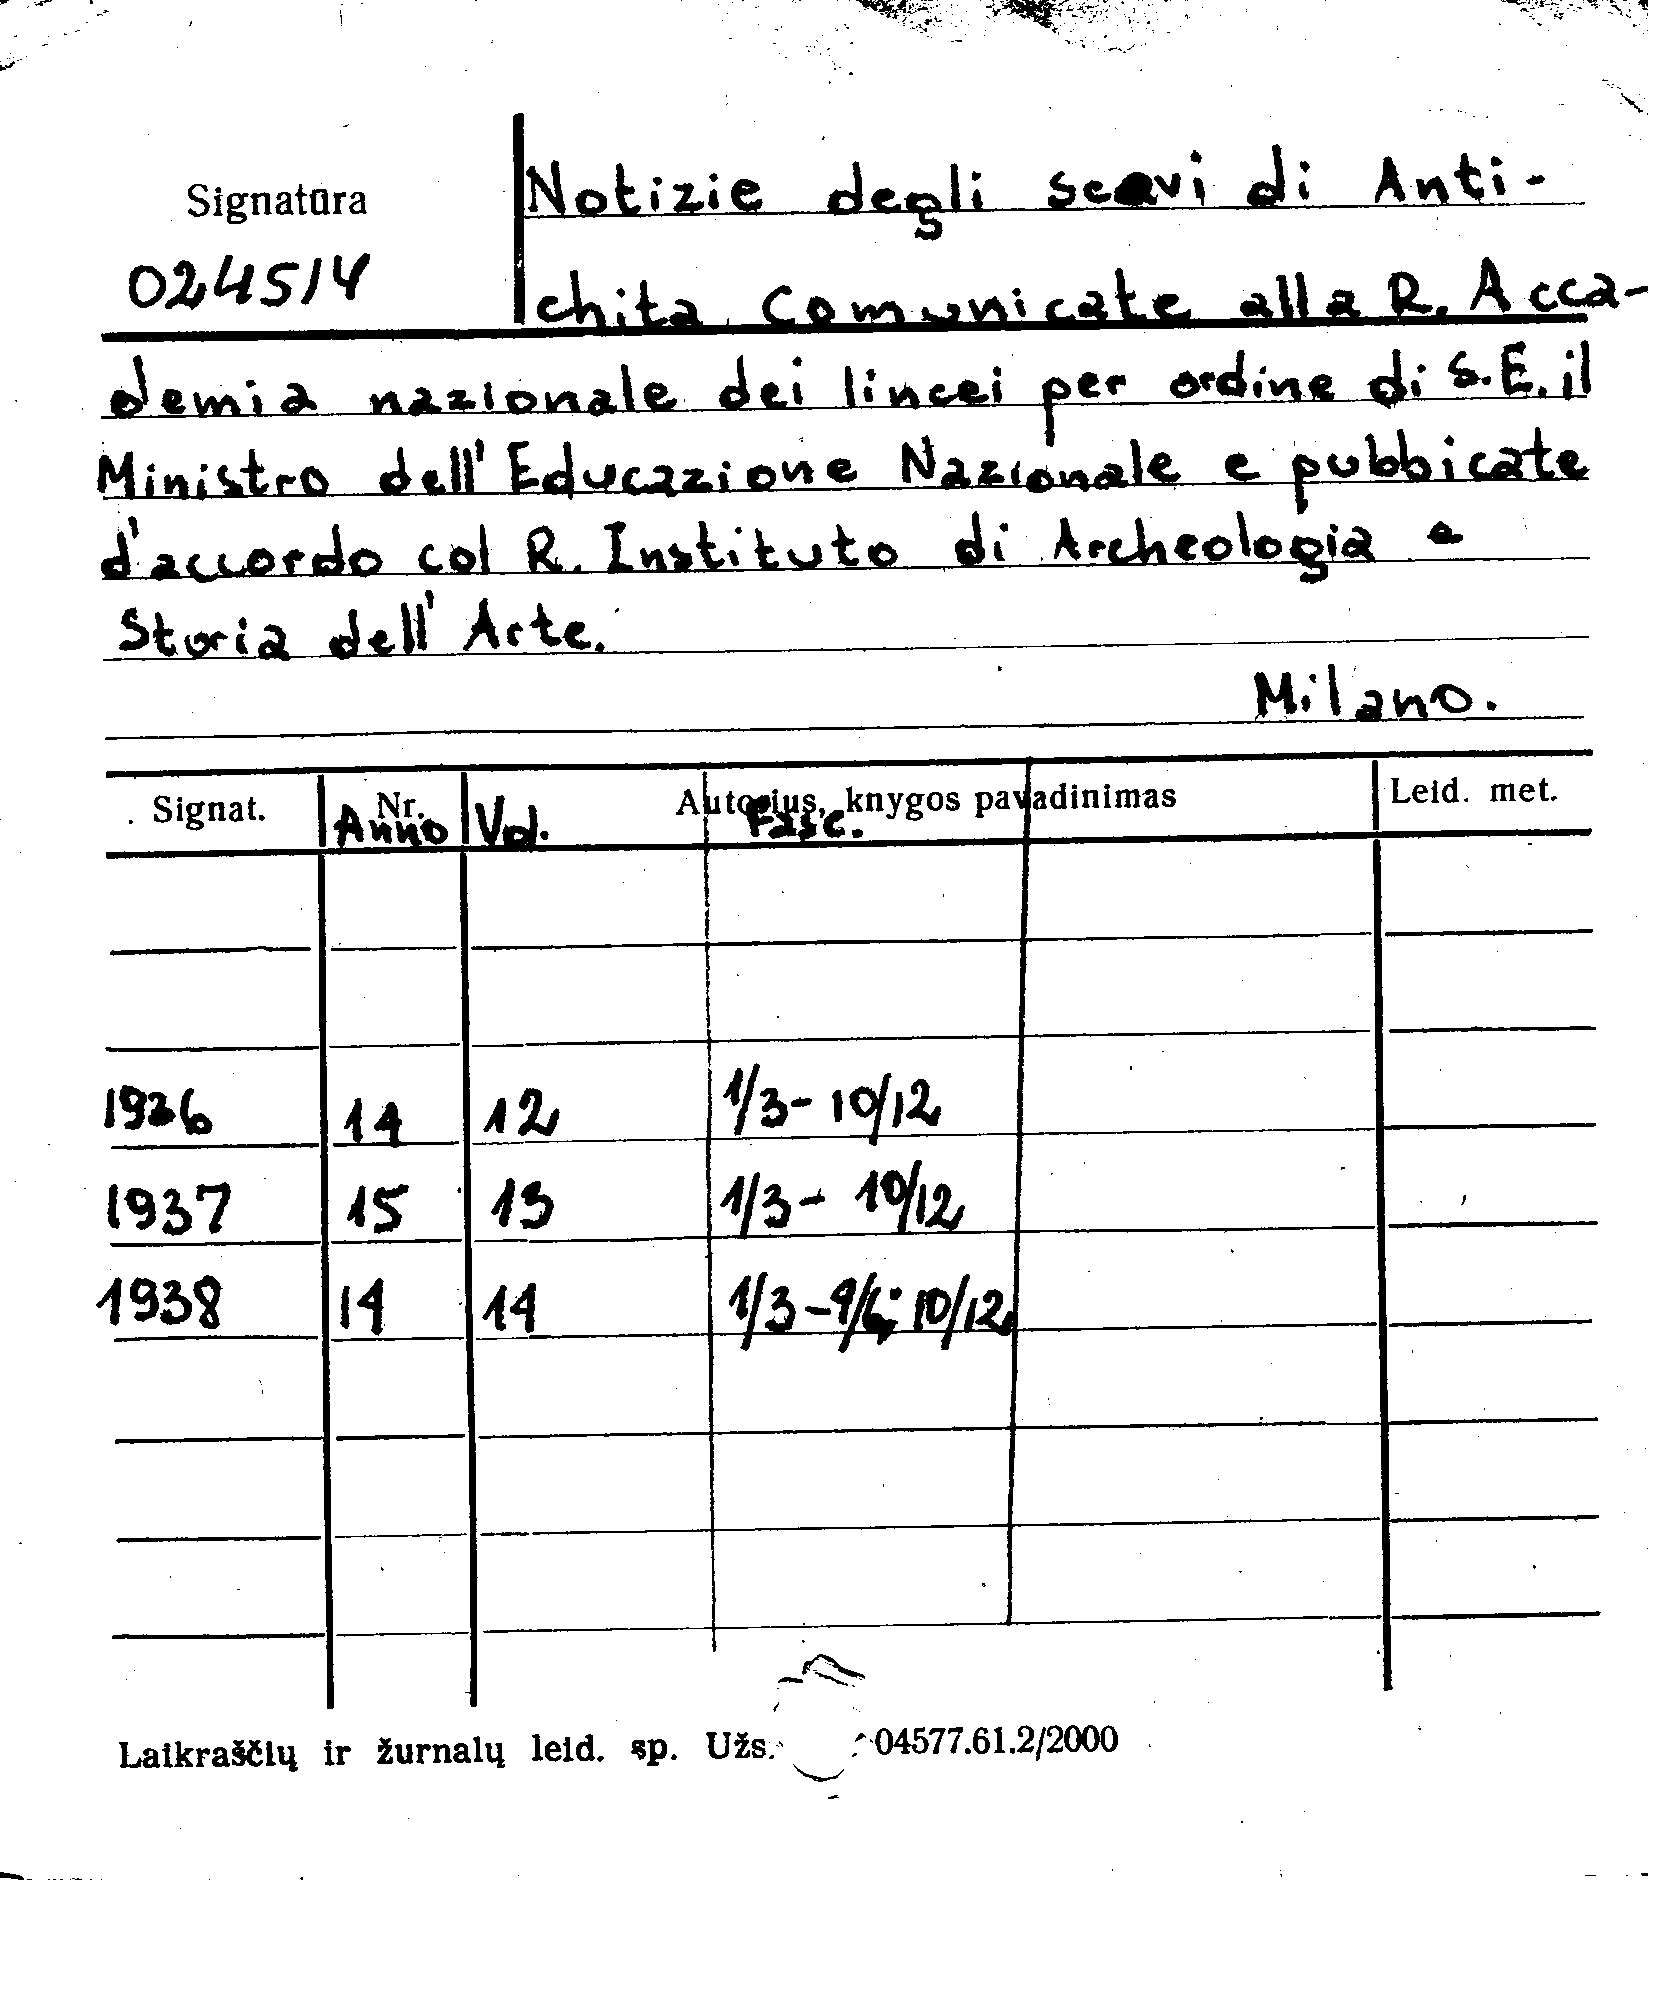 Signatūra
024514
Notizie degli scavi di Anti-
chita comunicate alla R. Acca-
demia nazionale dei lincei per ordine di S.E. il
Ministro dell'Educazione Nazionale e pubbicate
d'accordo col R. Instituto di Archeologia e
Storia dell'Arte.
Milano.
Signat. Nr. Autorius, knygos pavadinimas Leid. met.
Anno Vol. Fasc.
1936 14 12 1/3- 10/12
1937 15 13 1/3- 10/12
1938 14 14 1/3-4/6; 10/12
Laikraščių ir žurnalų leid. sp. Užs. 04577.61.2/2000